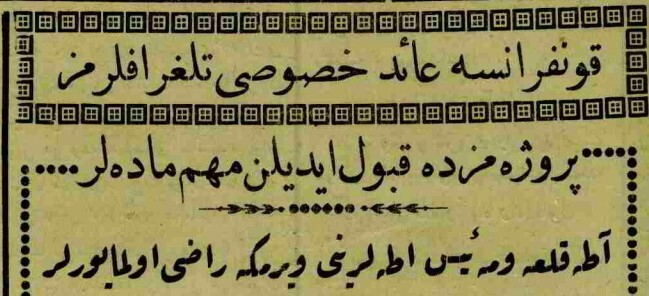 قونفرانسه عائد خصوصی تلغرافلرمز
پروژه مزده قبول ایدیلن مهم ماده لر
آطه قلعه ومه ئیس اطه لرینی ویرمکه راضی اولمایورلر